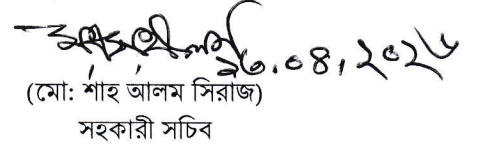 ২৩.০৪.২০২৬
(মো: শাহ আলম সিরাজ)
সহকারী সচিব